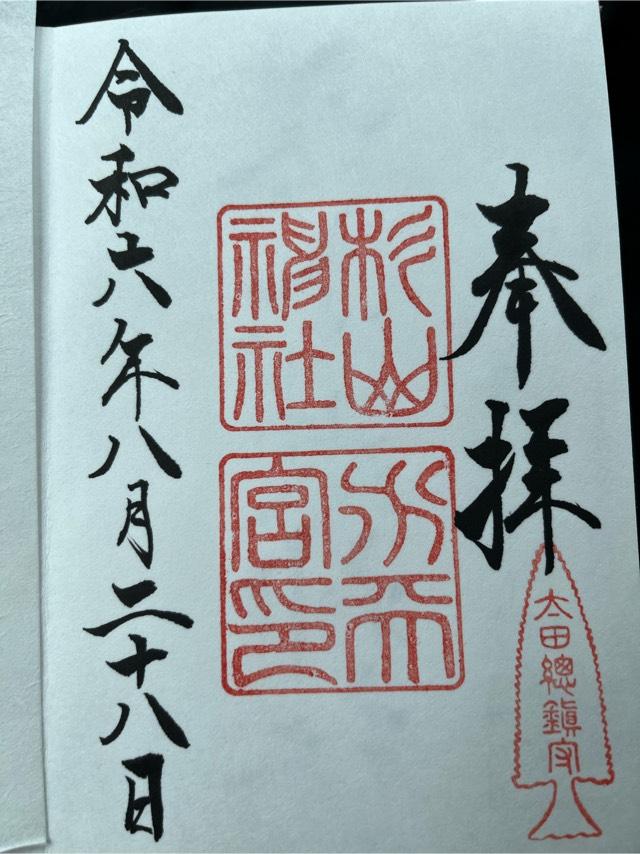 奉拝
太田總鎮守
杉山
神社
水天
宮印
令和六年八月二十八日